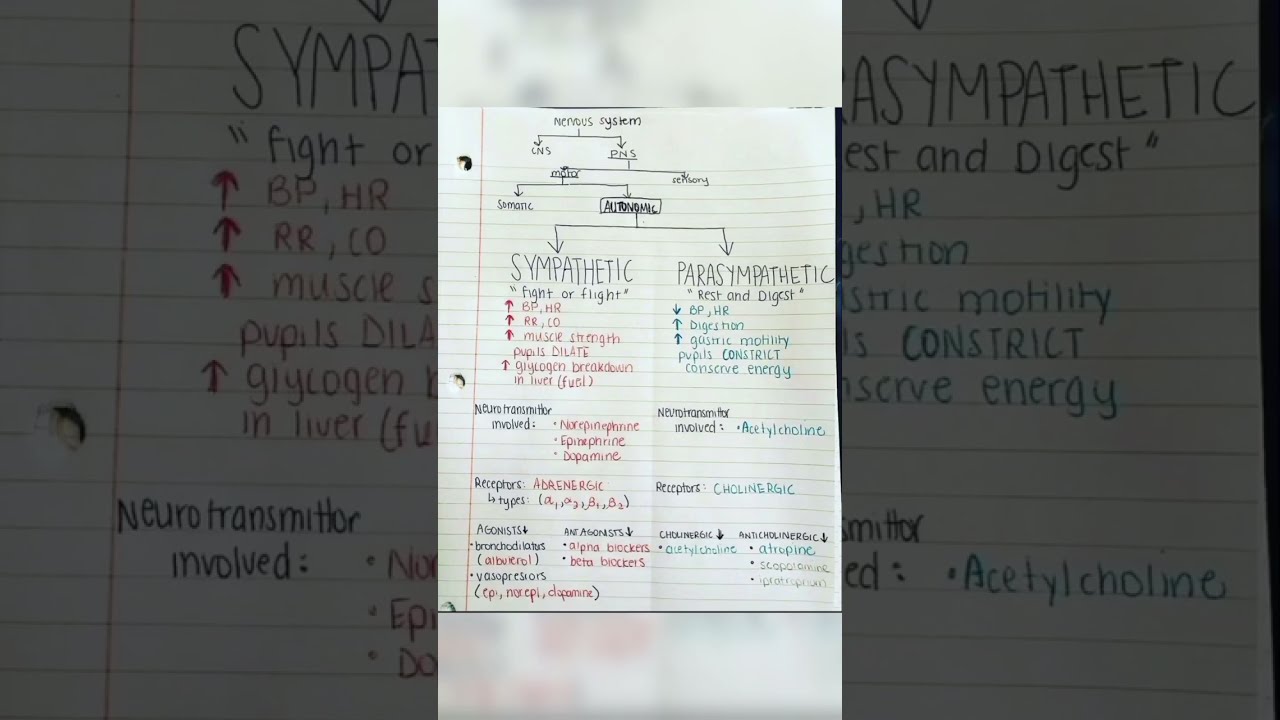 Nervous system
CNS PNS
motor sensory
Somatic AUTONOMIC
SYMPATHETIC
"fight or flight"
↑ BP, HR
↑ RR, CO
↑ muscle strength
pupils DILATE
↑ glycogen breakdown
in liver (fuel)
PARASYMPATHETIC
"Rest and Digest"
↓ BP, HR
↑ Digestion
↑ gastric motility
pupils CONSTRICT
conserve energy
Neurotransmittor
involved: • Norepinephrine
• Epinephrine
• Dopamine
Neurotransmittor
involved: • Acetylcholine
Receptors: ADRENERGIC
↳ types: (α₁, α₂, β₁, β₂)
Receptors: CHOLINERGIC
AGONISTS↓
• bronchodilators
(albuterol)
• vasopressors
(epi, norepi, dopamine)
ANTAGONISTS↓
• alpha blockers
• beta blockers
CHOLINERGIC↓
• acetylcholine
ANTICHOLINERGIC↓
• atropine
• scopolamine
• ipratropium
SYMPAT
"fight or
↑ BP, HR
↑ RR, CO
↑ muscle s
pupils DILA
↑ glycogen b
in liver (fu
Neurotransmittor
involved: • Nor
• Epi
• Do
RASYMPATHETIC
est and Digest"
, HR
gestion
stric motility
ls CONSTRICT
nserve energy
smittor
ed: • Acetylcholine